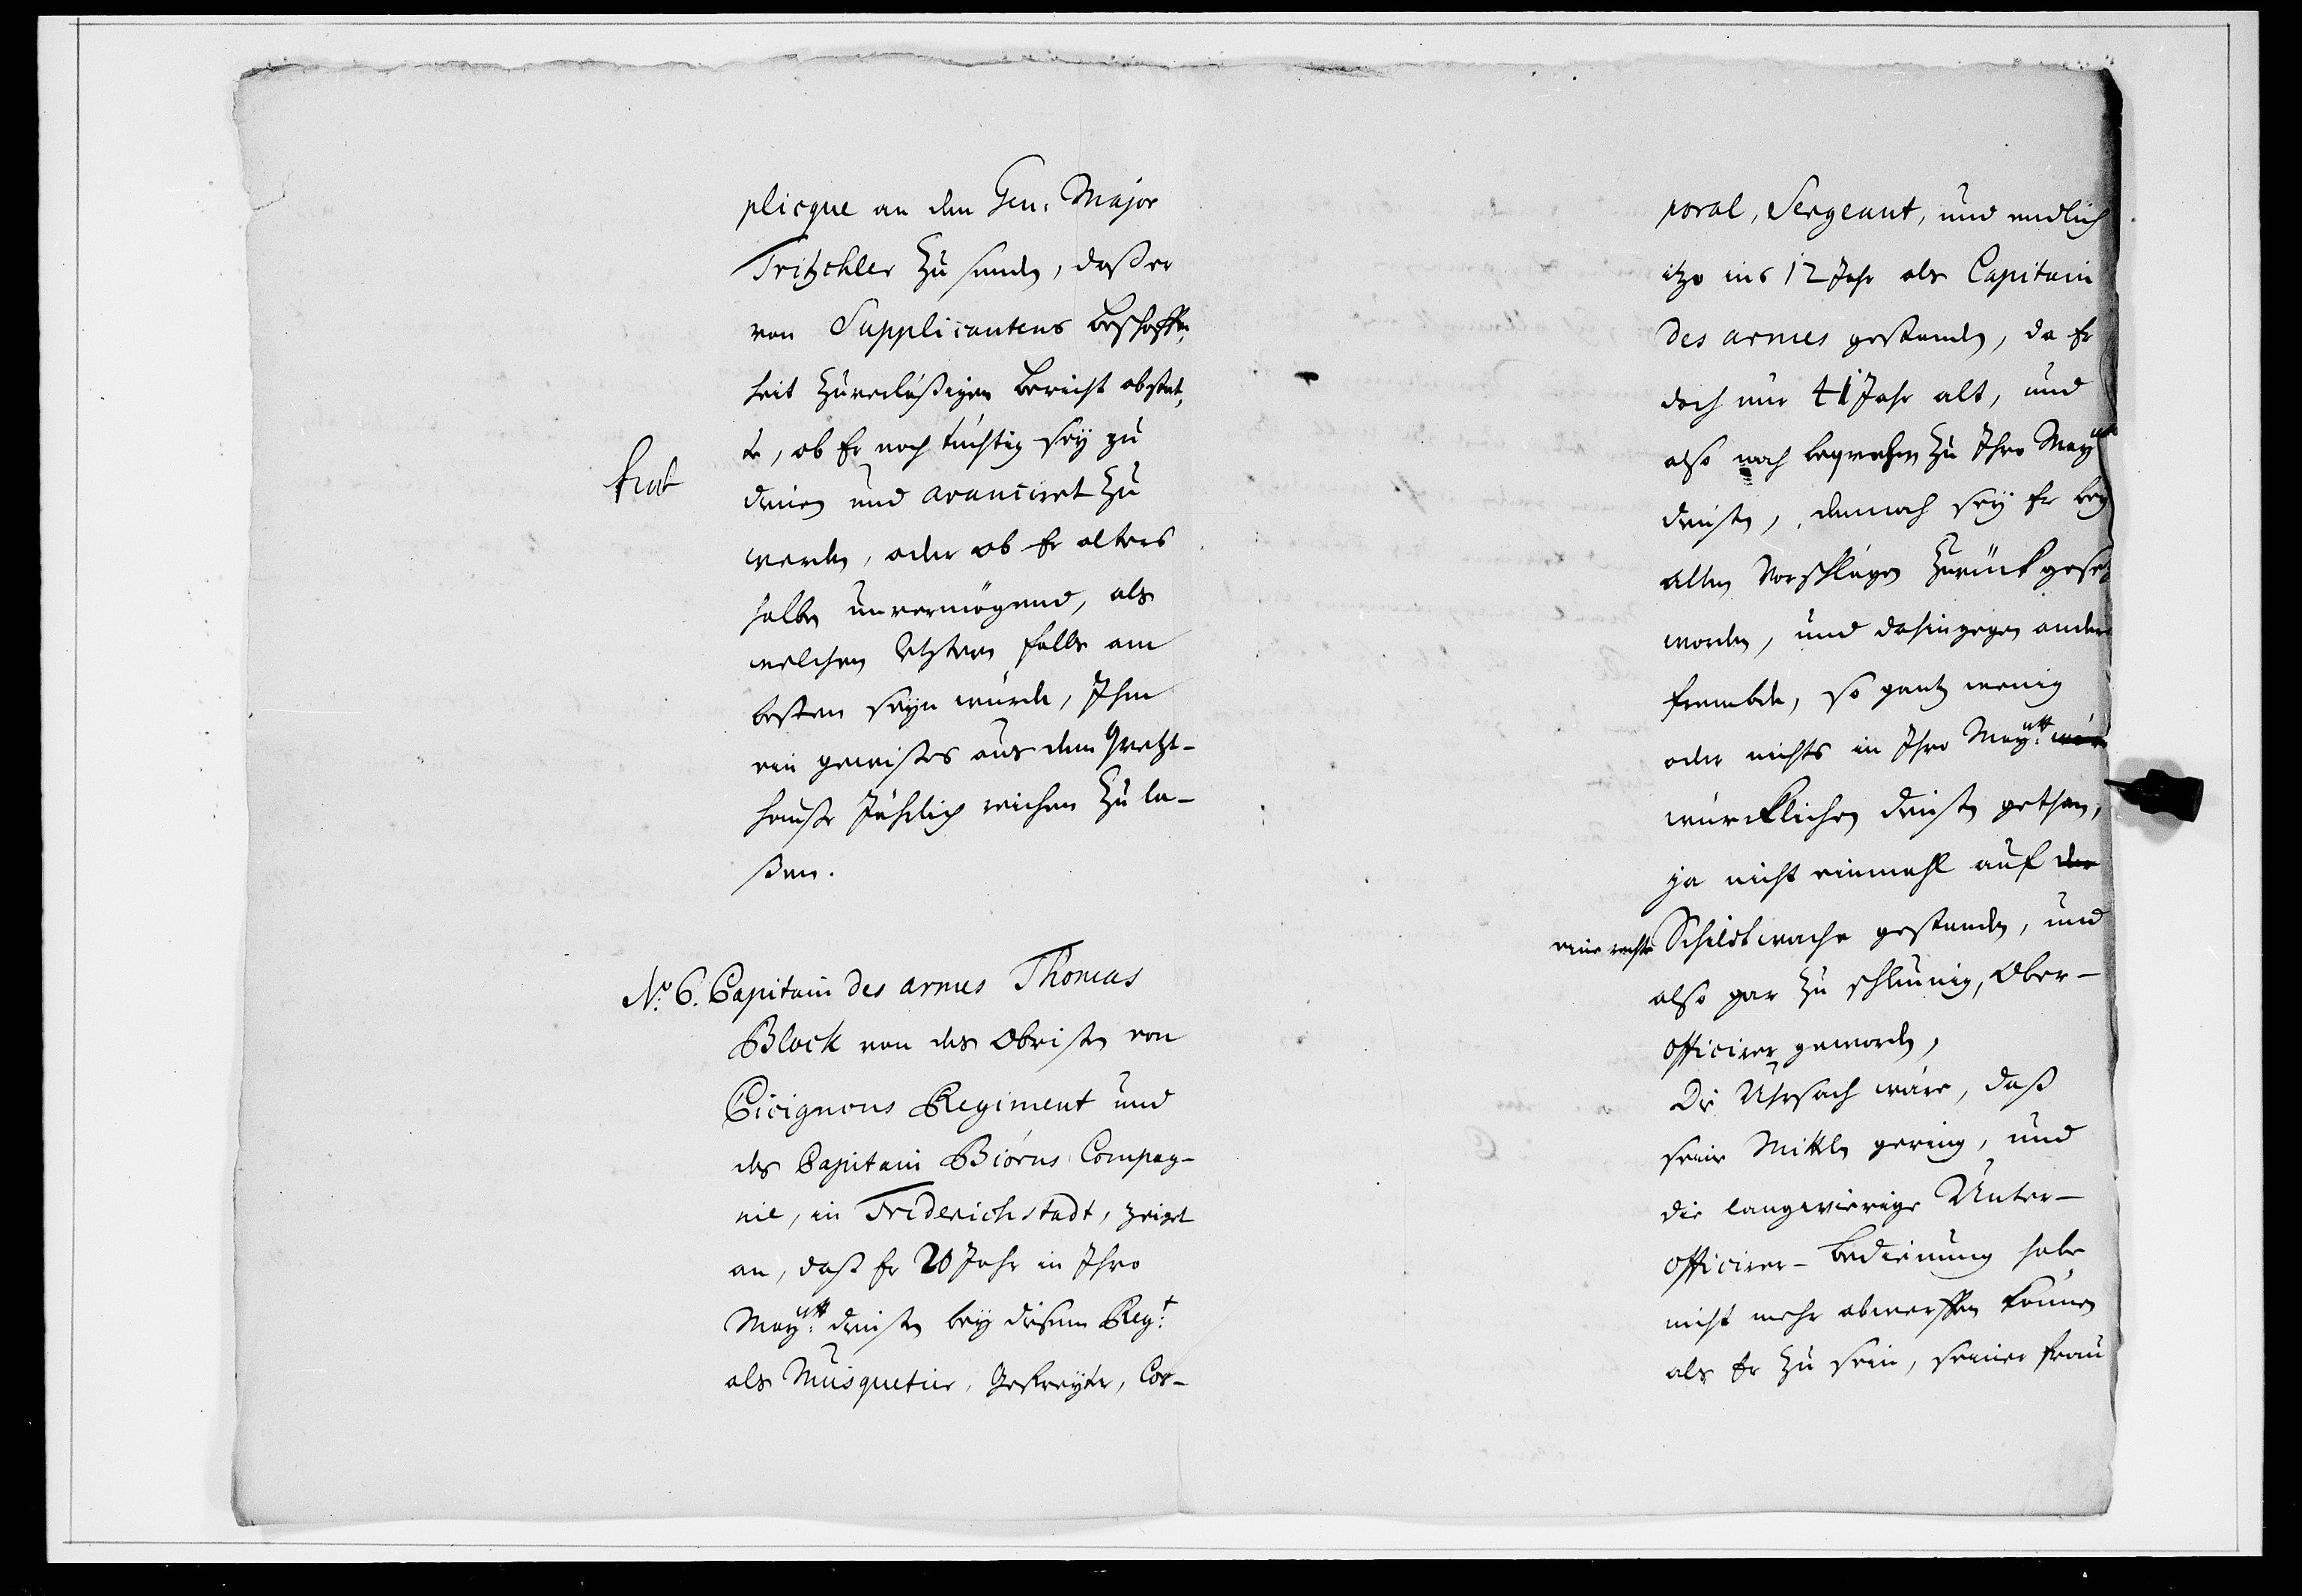 plicque an den Gen: Major
Tritzchler zu senden, daß er
von Supplicantens Beschaffen,
heit zuverläßigen Bericht abstat,
te, ob Er noch tüchtig sey zu
dienen und avanciret zu
werden, oder ob Er alters
halben unvermögend, als
welchen letztern falls am
besten seyn würde, Ihm
ein gewißes aus dem Quest-
hause Jährlich reichen zu la-
ßen.
No. 6. Capitain des armes Thomas
Block von des Obristen von
Cicignons Regiment und
des Capitain Biörns Compag-
nie, in Friderichstadt, zeiget
an, daß Er 20 Jahr in Ihro
Maytt: diensten bey diesem Regt:
als Musquetier, Gefreyter, Cor-
poral, Sergeant, und endlich
itzo ins 12 Jahr als Capitain
des armes gestanden, da Er
doch nur 41 Jahr alt, und
also noch bequehm zu Ihro Maytt
diensten, dennoch sey Er bey
allen Vorschlägen zurück gesetz
worden, und dahingegen andere
frembde, so gantz wenig
oder nichts in Ihro Maytt:
würcklichen diensten gethan,
ja nicht einmahl auf der
eine rechte Schildwache gestanden, und
also gar zu schleunig, Ober-
officirer geworden,
Die Uhrsach wäre, daß
seine Mittel gering, und
die langwierige Unter-
officirer-Bedienung habe
nicht mehr abwerffen können
als Er zu sein, seiner Frau